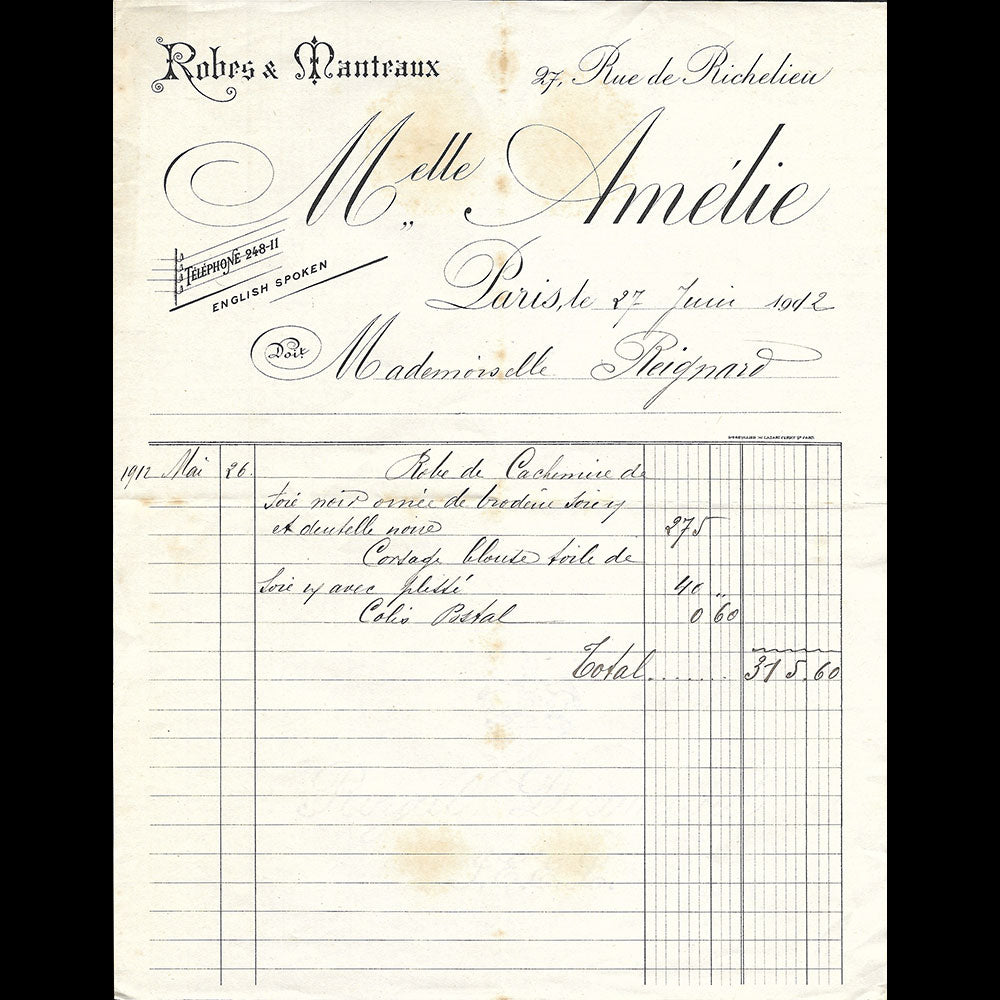 Robes & Manteaux
27, Rue de Richelieu
Melle Amélie
TÉLÉPHONE 248-11
ENGLISH SPOKEN
Paris, le 27 Juin 1912
Doit
Mademoiselle Reignard
1912 Mai 26. Robe de Cachemire de
soie noir ornée de broderie
et dentelle noire 275
Corsage blouse toile de
Soie avec plissé 40 "
Colis Postal 0 60
Total....... 315.60